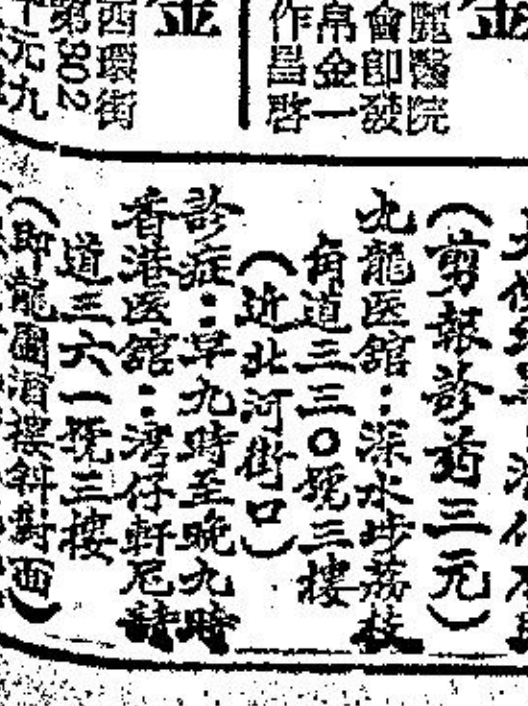 麗醫院
會即發
帛金一
作昌啓
西環街
第302
元九
(剪報診葯三元)
九龍医舘:深水埗荔枝
角道三三〇號三樓
(近北河街口)
診症:早九時至晚九時
香港医舘:灣仔軒尼詩
道三六一號三樓
(即龍圖酒樓斜對面)